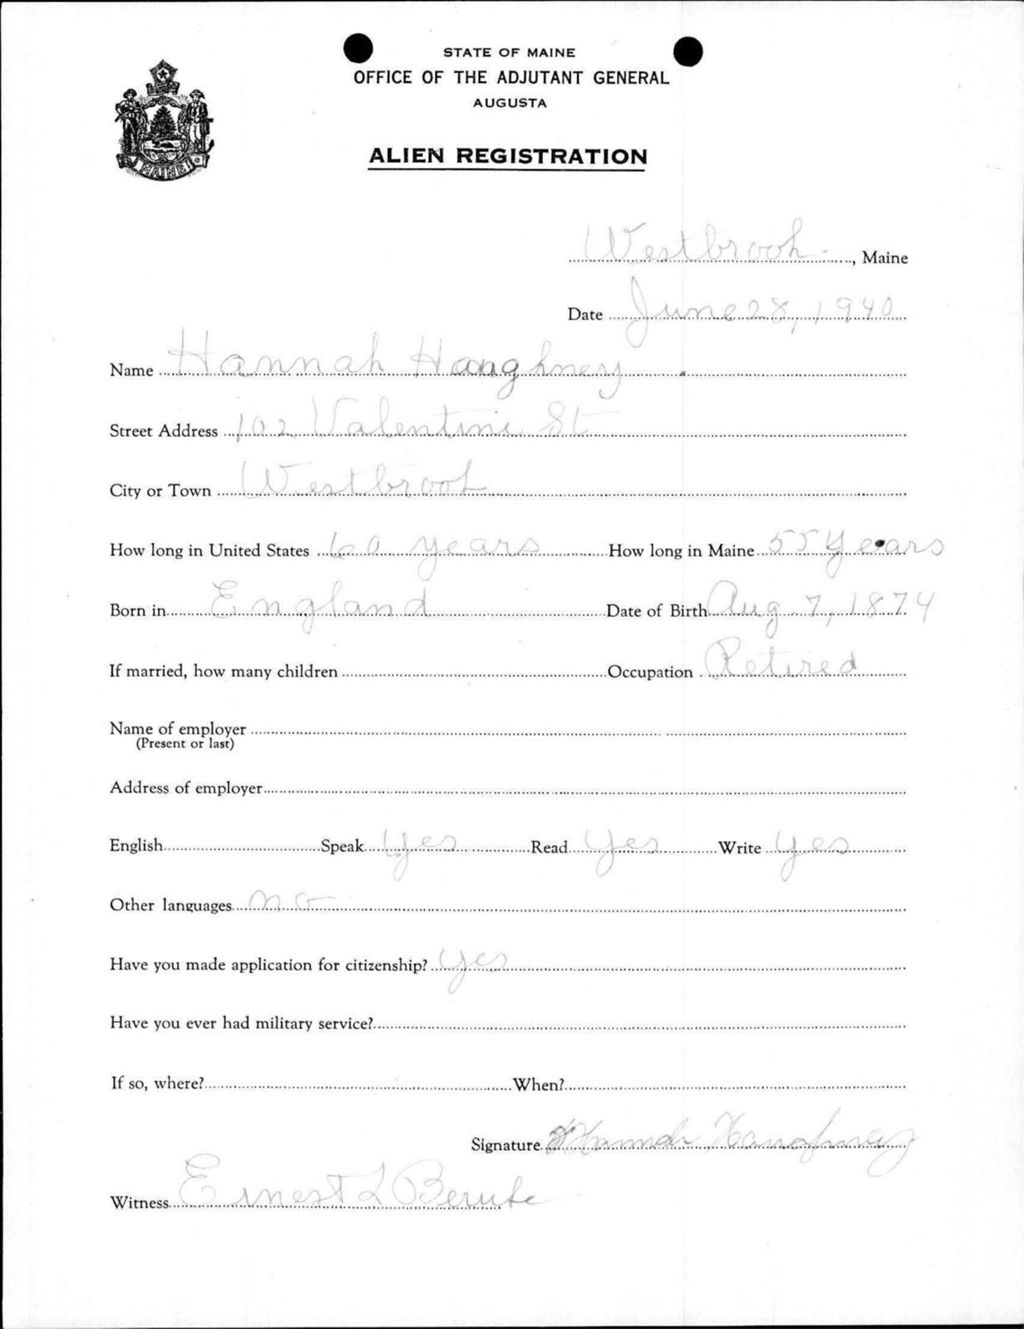 STATE OF MAINE
OFFICE OF THE ADJUTANT GENERAL
AUGUSTA
MAINE
ALIEN REGISTRATION
Westbrook, Maine
Date June 28, 1940
Name Hannah Haughney
Street Address 102 Valentine St
City or Town Westbrook
How long in United States 60 years How long in Maine 55 Years
Born in England Date of Birth Aug 7, 1874
If married, how many children Occupation Retired
Name of employer
(Present or last)
Address of employer
English Speak Yes Read Yes Write Yes
Other languages no
Have you made application for citizenship? Yes
Have you ever had military service?
If so, where? When?
Signature Hannah
Witness Ernest L